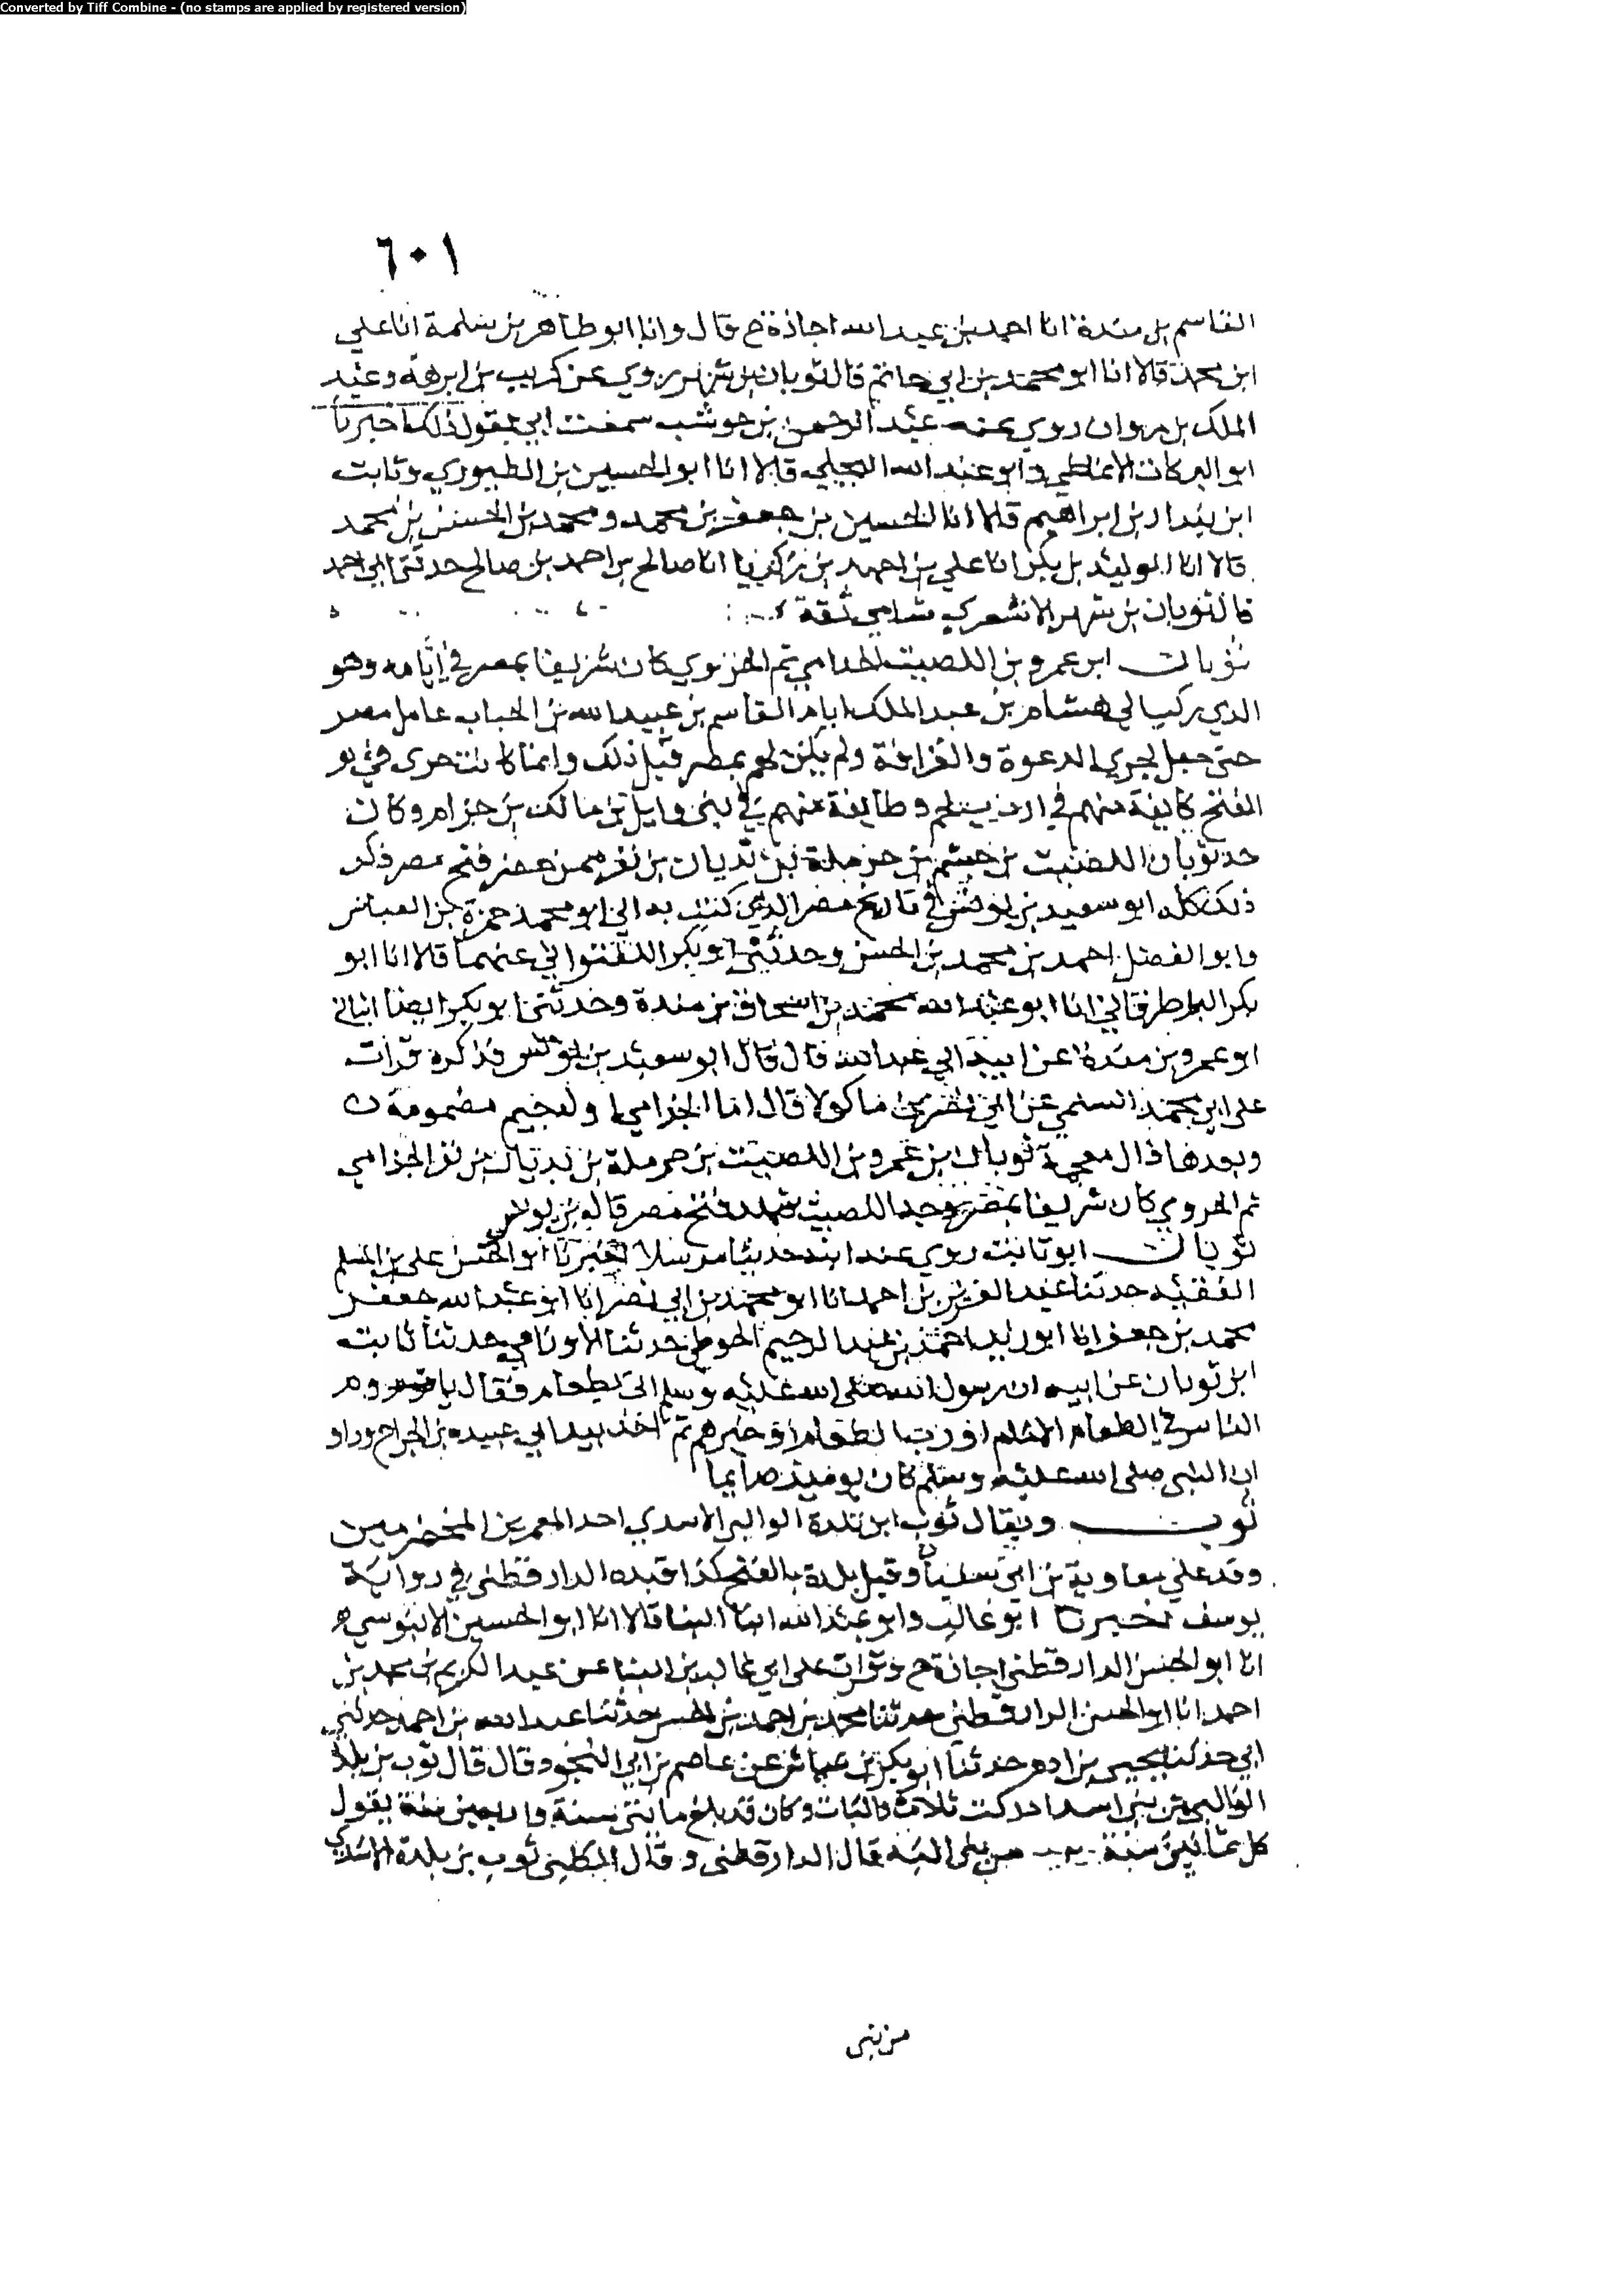 Converted by Tiff Combine - (no stamps are applied by registered version)
٦٠١
القاسم بن مندة انا احمد بن عبد الله اجازة ح قال وانا ابو طاهر بن سلمة انا علي
ابن محمد قالا انا ابو محمد بن ابي حاتم قال ثوبان بن شهر روي عن كريب بن ابرهة وعبد
الملك بن مروان روي عنه عبد الرحمن بن حوشب سمعت ابي يقول ذلك اخبرنا
ابو البركات الانماطي وابو عبد الله البجلي قالا انا ابو الحسين بن الطيوري وثابت
ابن بندار بن ابراهيم قالا انا الحسين بن جعفر بن محمد ومحمد بن الحسن بن محمد
قالا انا الوليد بن بكر انا علي بن احمد بن زكريا انا صالح بن احمد بن صالح حدثني ابي احمد
قال ثوبان بن شهر الاشعري شامي ثقة
ثوبان ابن عمرو بن اللصيت الجذامي ثم كان شريفا بمصر في ايامه وهو
الذي ركب الي هشام بن عبد الملك ايام القاسم بن عبيد الله بن الحباب عامل مصر
حتى جعل الدعوة ولم يكن لهم بمصر قبل ذلك وانما كانت
الفتح منهم في وطايفة منهم في بني وايل بن مالك بن جزام وكان
جد ثوبان اللصيت بن جشم بن حرملة بن ممن حضر فتح مصر ذكر
ذلك كله ابو سعيد بن يونس في تاريخ مصر الذي كتب به الي ابو محمد حمزة بن العباس
وابو الفضل احمد بن محمد بن الحسن وحدثني ابو بكر اللفتواني عنهما قالا انا ابو
بكر الباطرقاني انا ابو عبد الله محمد بن اسحاق بن مندة وحدثني ابو بكر ايضا انباني
ابو عمرو بن مندة عن ابيه ابي عبد الله قال قال ابو سعيد بن يونس فذكره قرات
على ابي محمد السلمي عن ابي نصر بن ماكولا قال اما الجذامي اوله جيم مضمومة
وبعدها ذال معجمة ثوبان ابن عمرو بن اللصيت بن حرملة بن الجذامي
ثم كان شريفا بمصر وجد اللصيت شهد فتح مصر قاله بن يونس
ثوبان ابو ثابت روي عنه ابنه حديثا مرسلا اخبرنا ابو الحسن علي بن المسلم
الفقيه حدثنا عبد العزيز بن احمد انا ابو محمد بن ابي نصر انا ابو عبد الله جعفر
محمد بن جعفر انا ابو زيد احمد بن عبد الرحيم الحوطي حدثنا حدثنا ثابت
ابن ثوبان عن ابيه ان رسول الله صلى الله عليه وسلم اتى بطعام فقال
الناس في الطعام الامام او رب الطعام او خيرهم ثم اخذ بيد ابي عبيدة بن الجراح
ان النبي صلى الله عليه وسلم كان يوميذ صايما
ثوب ويقال ثوب ابن تلدة الوالبي الاسدي احد المعمرين المخضرمين
وفد علي معاوية بن ابي سفيان وقيل بلدة بالفتح كذا قيده الدارقطني في رواية
يوسف اخبرنا ابو غالب وابو عبد الله ابنا البنا قالا انا ابو الحسين الابنوسي
انا ابو الحسن الدارقطني اجازة ح وقرات على ابي غالب بن البنا عن عبد الكريم بن محمد بن
احمد انا ابو الحسن الدارقطني حدثنا محمد بن احمد بن الحسن حدثنا عبد الله بن احمد حدثني
ابي حدثنا يحيى بن ادم حدثنا ابو بكر بن عياش عن عاصم بن ابي النجود قال قال ثوب بن بلدة
الوالبي من بني اسد ادركت ثلاث والبات وكان قد بلغ مائتي سنة واربعين سنة يقول
كل ثمانين سنة قال الدارقطني وقال الكلبي ثوب بن بلدة الاسدي
من بني